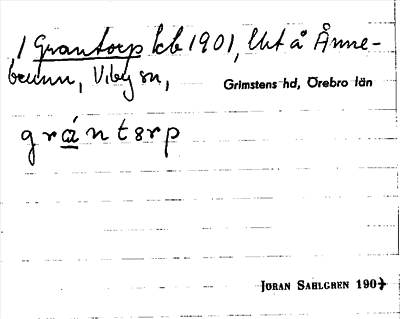 / Grantorp kb 1901, Urt å Änne-
brunn, Viby sn,
Grimstens hd, Örebro län
grántsrp
JÖRAN SAHLGREN 190